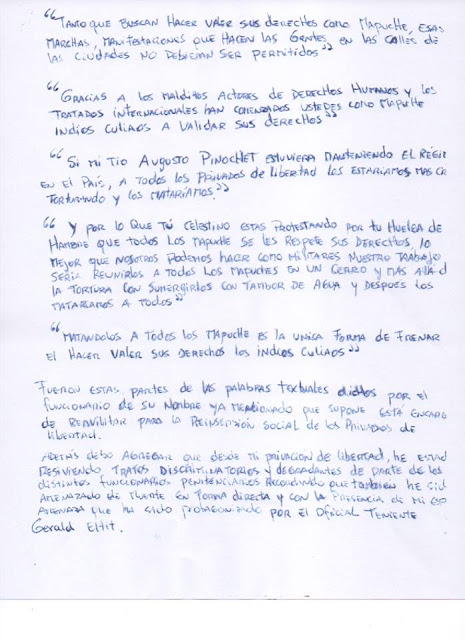 “Tanto que buscan hacer valer sus derechos como Mapuche, esas
marchas, manifestaciones que hacen las gentes en las calles de
las ciudades no deberian ser permitidos”
“Gracias a los malditos actores de derechos humanos y los
tratados internacionales han comenzados ustedes como Mapuche
indios culiaos a validar sus derechos”
“Si mi tio Augusto Pinochet estuviera manteniendo el Régi
en el país, a todos los privados de libertad los estariamos mas cr
torturando y los matariamos.”
“Y por lo que tú Celestino estas protestando por tu huelga de
hambre que todos los Mapuche se les respete sus derechos, lo
mejor que nosotros podemos hacer como militares nuestro trabajo
seria reunirlos a todos los Mapuches en un cerro y más allá d
la tortura con sumergirlos con tambor de agua y despues los
matariamos a todos”
“Matandolos a todos los Mapuche es la unisa forma de frenar
el hacer valer sus derechos los indios culiaos”
Fueron estas, partes de las palabras textuales dichos por el
funcionario de su nombre ya mencionado que supone está encarg
de reavilitar para la reinserción social de los privados de
libertad.
Además debo agregar que desde mi privacion de libertad, he estad
resiviendo tratos discriminatorios y degradantes de parte de los
distintos funcionarios penitenciarios recordando que tambien he sid
amenazado de muerte en forma directa y con la presencia de mi esp
amenaza que ha sido protagonizado por el Oficial Teniente
Gerald Eltit.